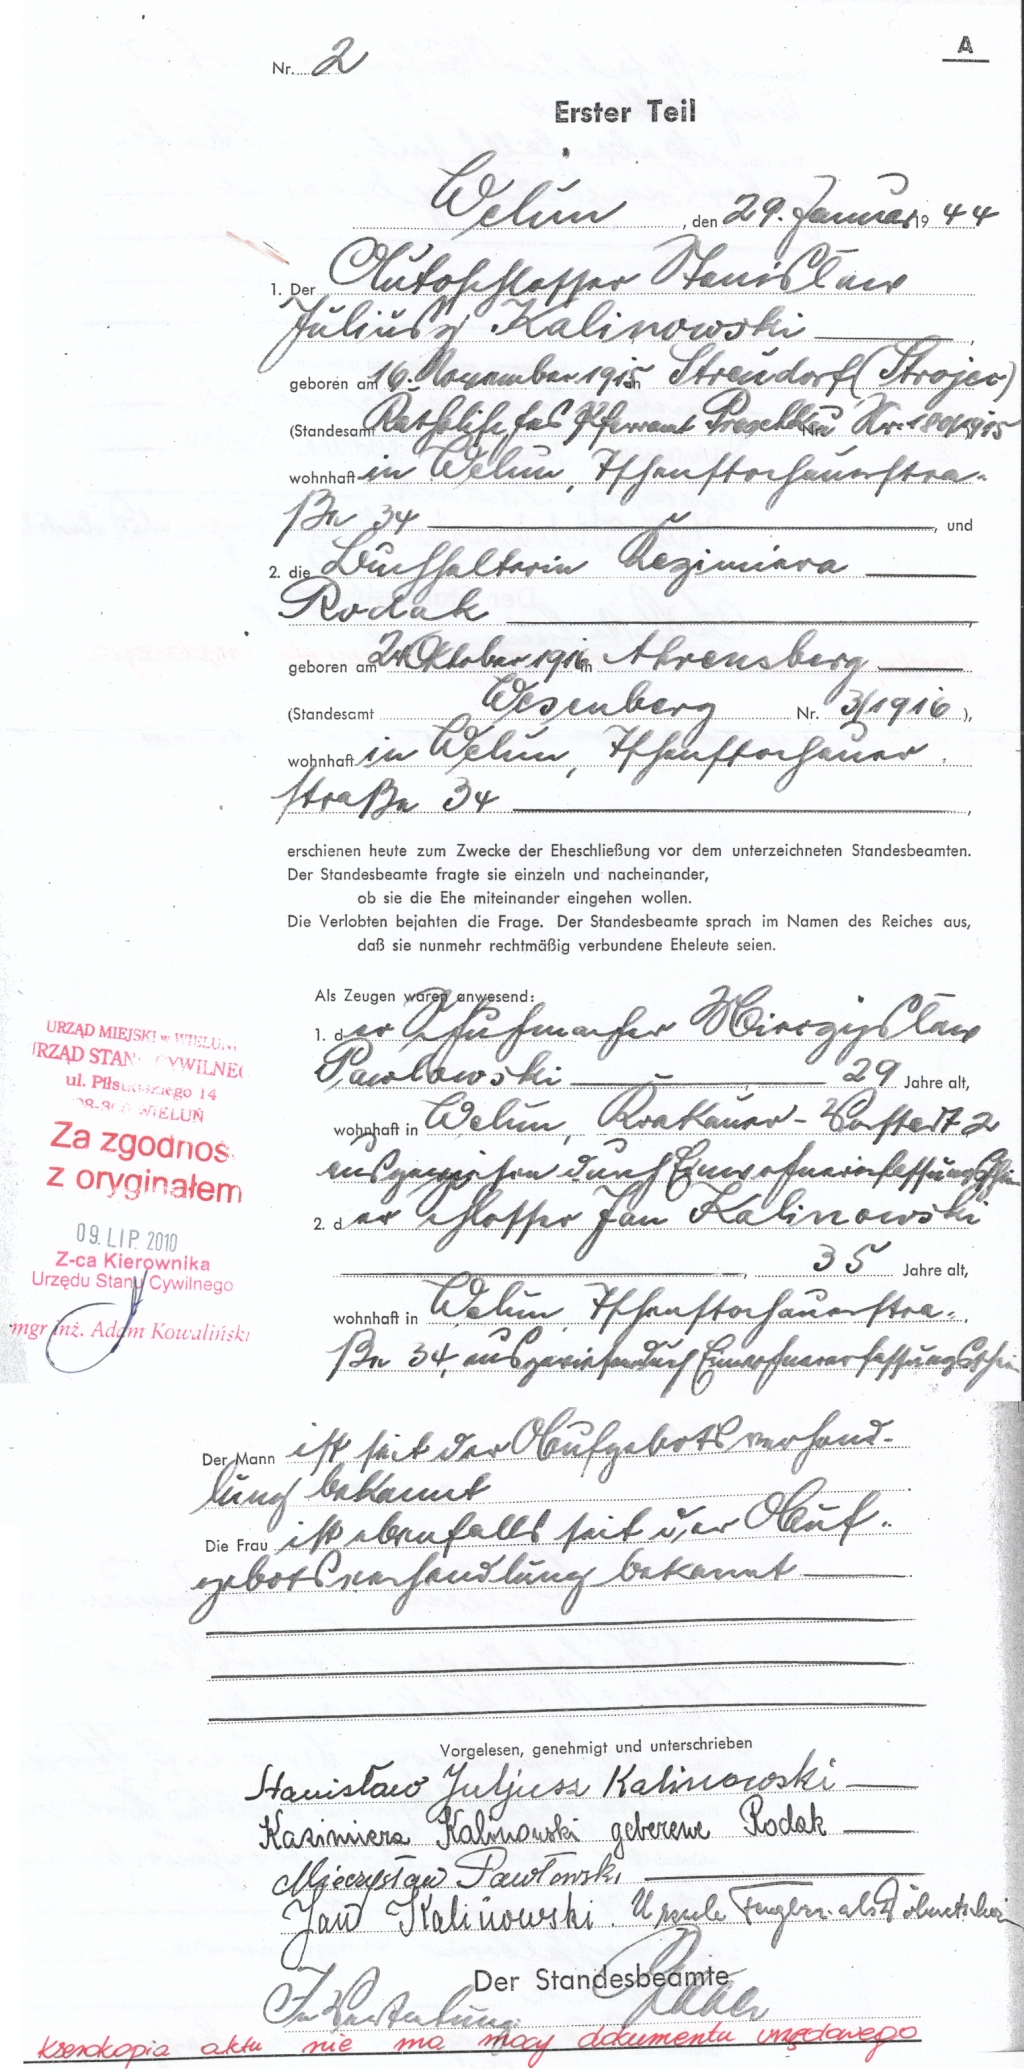 A
Nr. 2
Erster Teil
Welun, den 29. Januar 1944
1. Der Autoschlosser Stanislaw
Julius Kalinowski
geboren am 16. November 1915 in Streudorf (Strojec)
(Standesamt Katholisches Pfarramt Nr. 180/1915
wohnhaft in Welun, Tschenstochauerstra-
ße 34, und
2. die Buchhalterin Kazimiera
Rodak
geboren am 24. Oktober 1916 in Ahrensberg
(Standesamt Wesenberg Nr. 3/1916),
wohnhaft in Welun, Tschenstochauer
straße 34,
erschienen heute zum Zwecke der Eheschließung vor dem unterzeichneten Standesbeamten.
Der Standesbeamte fragte sie einzeln und nacheinander,
ob sie die Ehe miteinander eingehen wollen.
Die Verlobten bejahten die Frage. Der Standesbeamte sprach im Namen des Reiches aus,
daß sie nunmehr rechtmäßig verbundene Eheleute seien.
Als Zeugen waren anwesend:
1. der Schuhmacher Mieczyslaw
Pawlowski, 29 Jahre alt,
wohnhaft in Welun, Krakauer-Vorstadt 2
ausgewiesen durch Einwohnererfassungsschein
2. der Schlosser Jan Kalinowski
, 35 Jahre alt,
wohnhaft in Welun, Tschenstochauerstra-
ße 34, ausgewiesen durch Einwohnererfassungsschein
URZĄD MIEJSKI w WIELUNIU
URZĄD STANU CYWILNEGO
ul. Piłsudskiego 14
98-300 WIELUŃ
Za zgodność
z oryginałem
09. LIP. 2010
Z-ca Kierownika
Urzędu Stanu Cywilnego
mgr inż. Adam Kowaliński
Der Mann ist seit der Aufgebotsverhand-
lung bekannt
Die Frau ist ebenfalls seit der Auf-
gebotsverhandlung bekannt
Vorgelesen, genehmigt und unterschrieben
Stanisław Juljusz Kalinowski
Kazimiera Kalinowski geborene Rodak
Mieczysław Pawłowski
Jan Kalinowski. als Dolmetscherin
Der Standesbeamte
In Vertretung
kserokopia aktu nie ma mocy dokumentu urzędowego